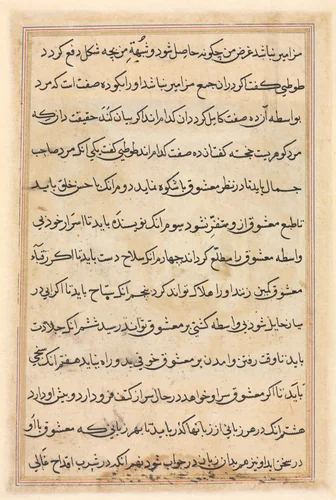 مزامیر نباشد غرض من چگونه حاصل شود و شبههٔ من بچه شکل دفع گردد
طوطی گفت اگر در ان جمع مزامیر نباشد او را بگو ده صفت است که مرد
بواسطه آن ده صفت کامل گردد ان کدام اند اگر بیان کند حقیقت دان که
مرد گوهریست خجسته گفت ان ده صفت کدام اند طوطی گفت یکی انکه مرد صاحب
جمال باید تا در نظر معشوق باشکوه نماید دوم انکه با حسن خلق باید
تا طبع معشوق از و متنفر نشود سیوم انکه نویسنده باید تا اسرار خود بی
واسطه معشوق را مطلع گرداند چهارم انکه سلاح دست باید تا اکر رقباء
معشوق کمین زنند او را هلاک تواند کرد پنجم انکه سباح باید تا اکر ابی در
میان حایل شود بی واسطه کشتی بر معشوق تواند رسید ششم انکه جلادت
باید تا وقت رفتن و امدن بر معشوق خوفی بدو راه نیابد هفتم انکه سخی
باید تا اکر معشوق سر او خواهد در حال سر از کتف فرو دارد و پیش او دارد
هشتم انکه در هر زبانی از زبانها گذر یابد تا بهر زبانی که معشوق با او
در سخن اید او نیز هم بدان زبان در جواب شود نهم انکه در شرب اقداح غالی